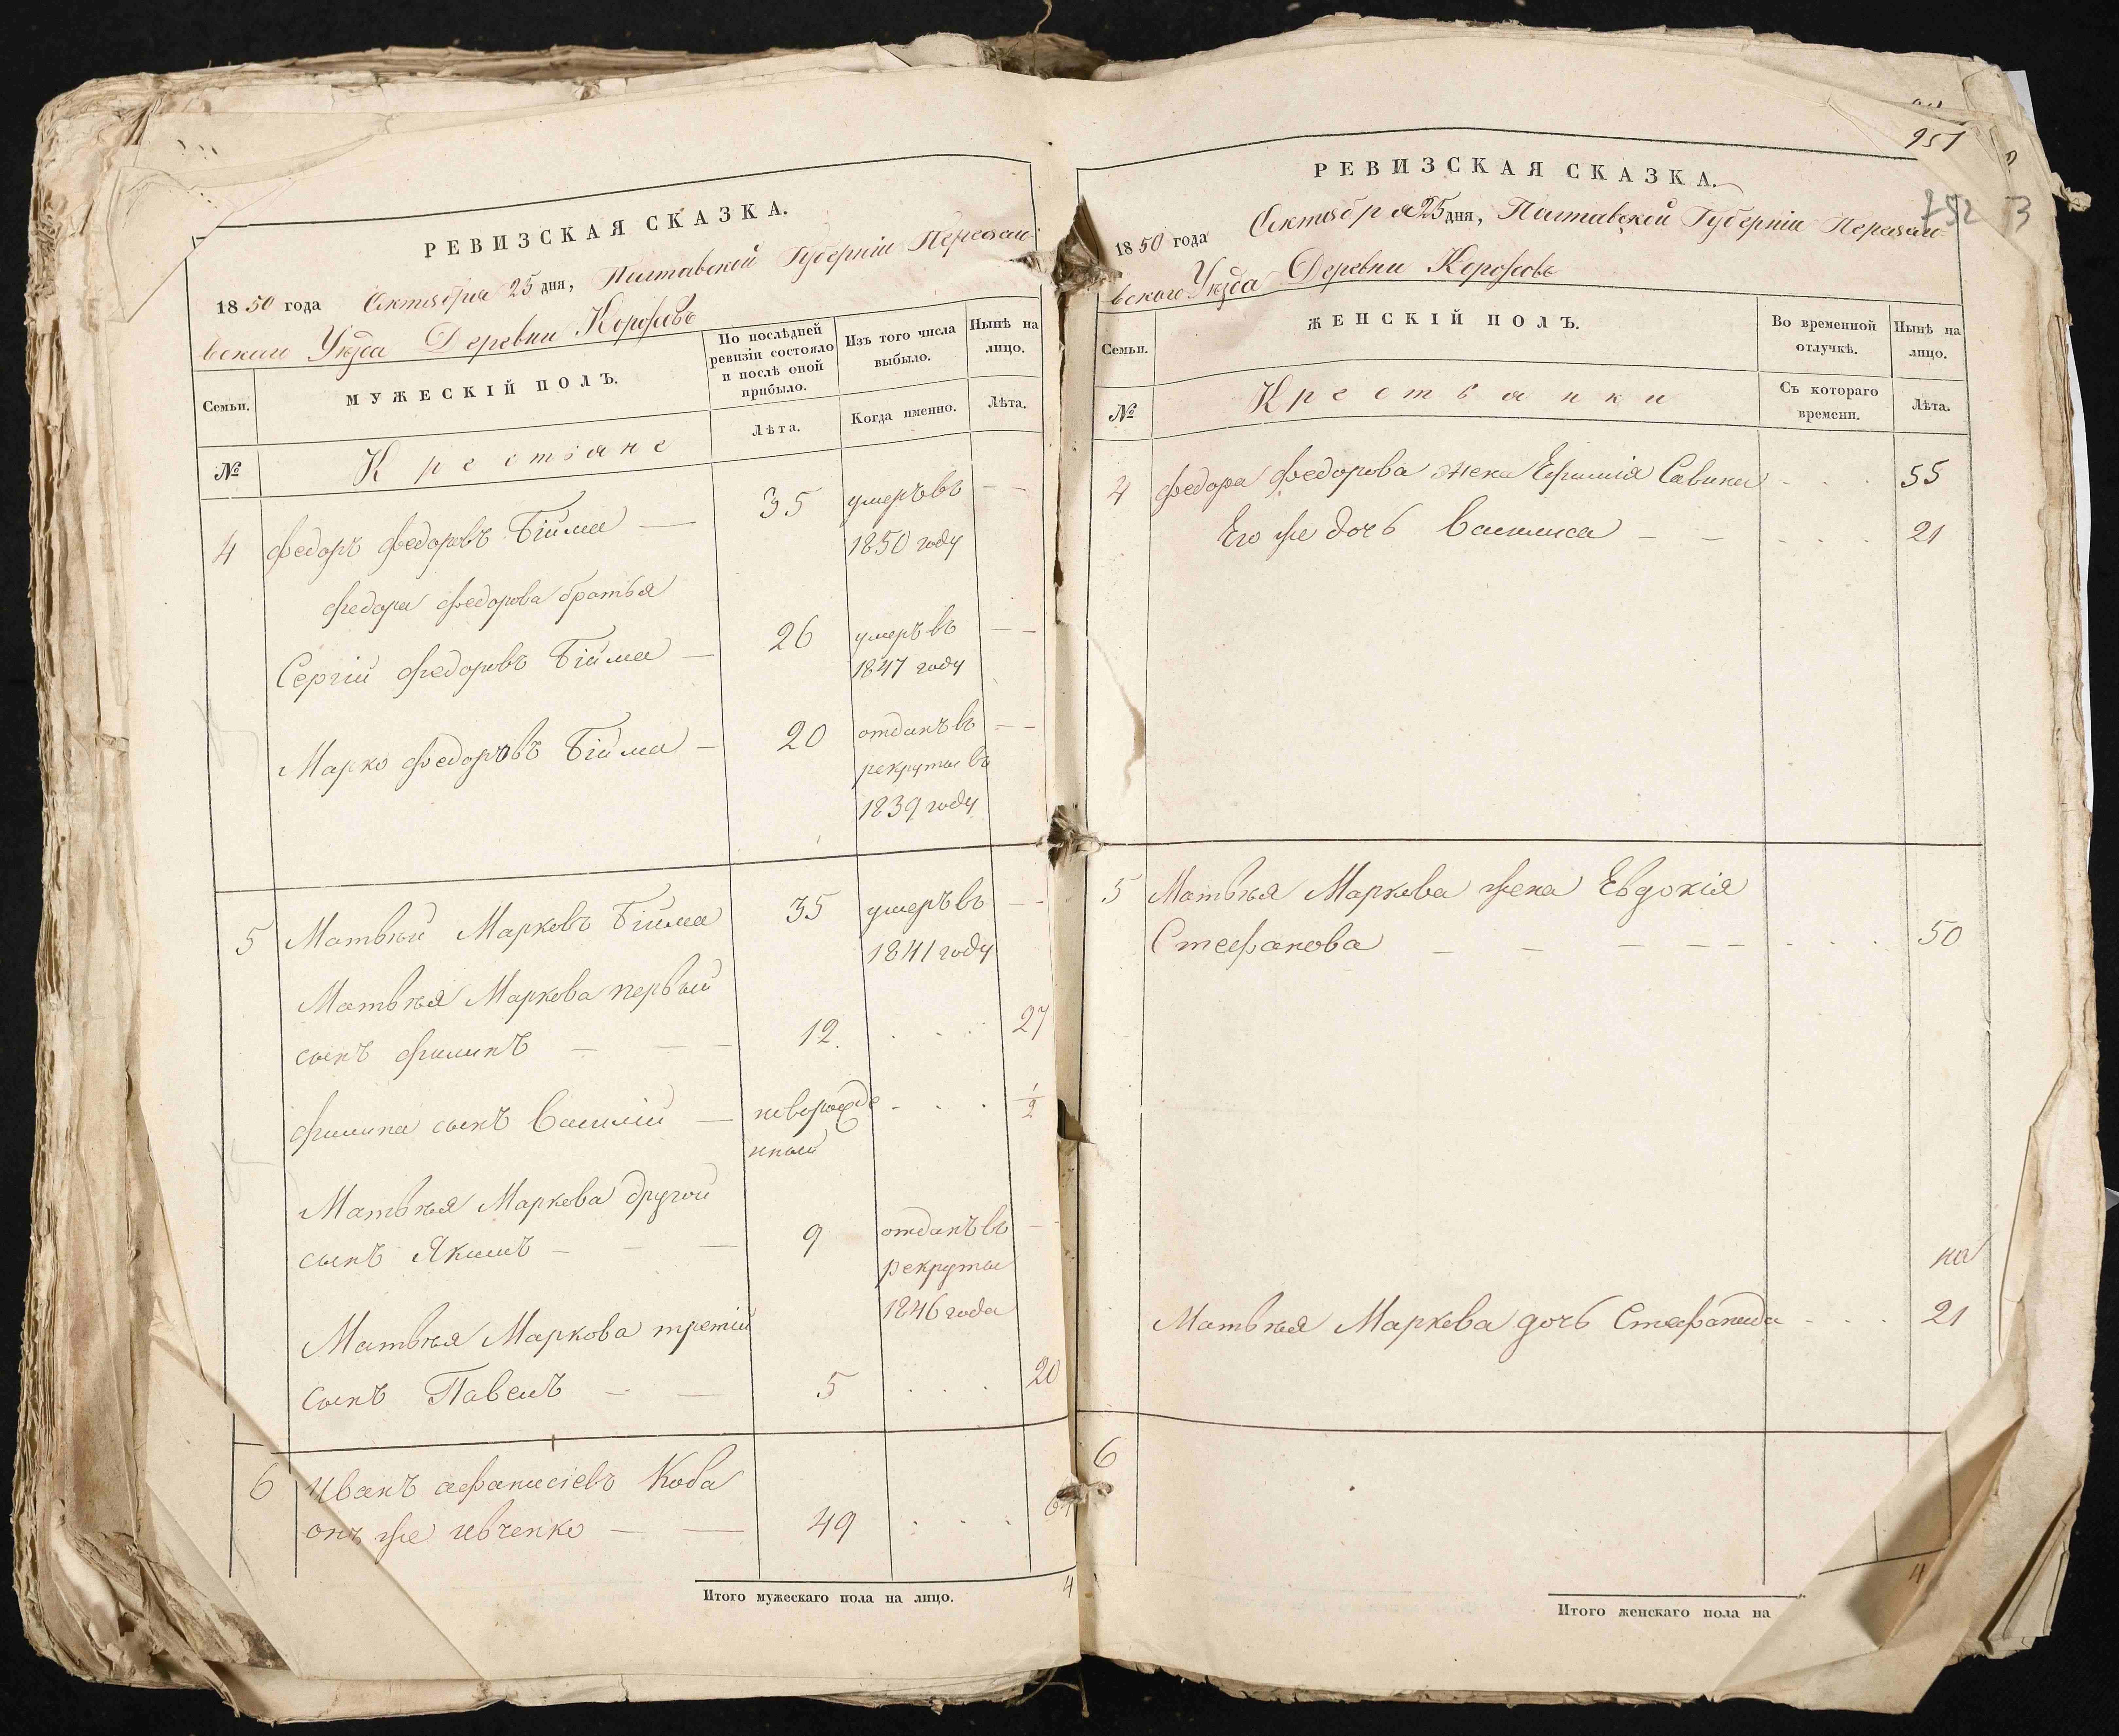 РЕВИЗСКАЯ СКАЗКА.
1850 года Октября 25 дня, Полтавской Губерніи Переяслав
вскаго Уезда Деревни Коржовъ
Семьи.
МУЖЕСКІЙ ПОЛЪ.
По послѣдней ревизіи состояло и послѣ оной прибыло.
Изъ того числа выбыло.
Нынѣ на лицо.
№
Крестяне
Лѣта.
Когда именно.
Лѣта.
4 Федоръ Федоровъ Бійма — 35 умеръ въ — —
1850 году
Федора Федорова братья
Сергій Федоровъ Бійма — 26 умеръ въ — —
1847 году
Марко Федоровъ Бійма — 20 отданъ въ — —
рекруты въ
1839 году
5 Матвѣй Марковъ Бійма 35 умеръ въ — —
1841 году
Матвѣя Маркова первый
сынъ Филипъ — — — 12. . . . 27
Филипа сынъ Василій — неворожде - . . 1/2
нный
Матвѣя Маркова другой
сынъ Якимъ — — — 9 отданъ въ — —
рекруты
1846 года
Матвѣя Маркова третій
сынъ Павелъ — — 5 . . . 20
6 Иванъ Афанасіевъ Коба
онъ же Ивченко — — 49 . . . 64
Итого мужескаго пола на лицо. 4
951
752 3
РЕВИЗСКАЯ СКАЗКА.
1850 года Октября 25 дня, Полтавской Губерніи Переяслав
вскаго Уезда Деревни Коржовъ
Семьи.
ЖЕНСКІЙ ПОЛЪ.
Во временной отлучкѣ.
Нынѣ на лицо.
№
Крестьянки
Съ котораго времени.
Лѣта.
4 Федора Федорова жена Ефимія Савина - . . . 55
Его же дочь Василиса — — . . . . 21
5 Матвѣя Маркова жена Евдокія
Стефанова — — — — — . . . 50
на
Матвѣя Маркова дочь Стефанида - . . . 21
6
4
Итого женскаго пола на